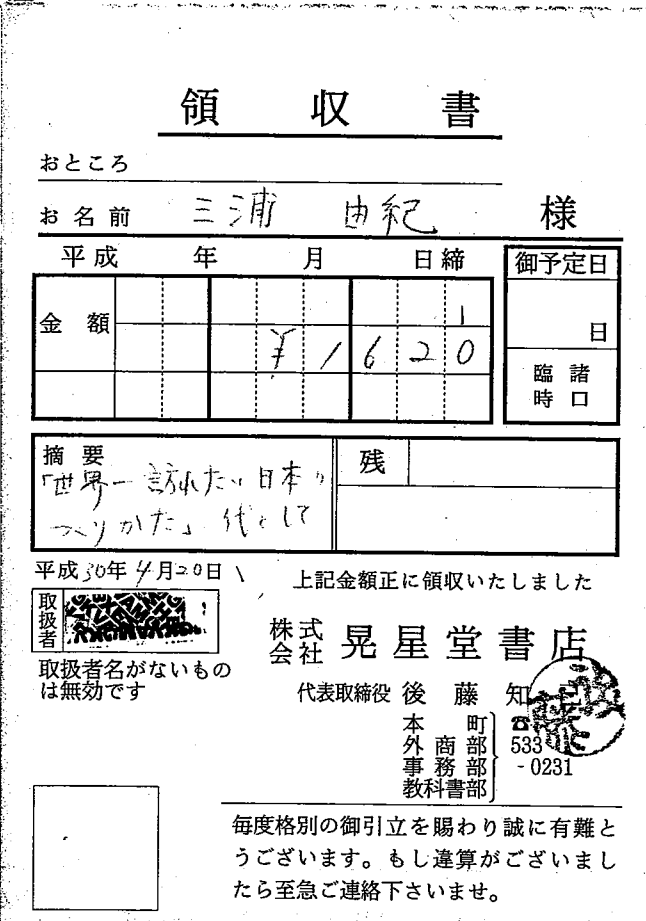 領収書
おところ
お名前 三浦 由紀 様
平成 年 月 日締
御予定日
日
臨時 諸口
金額
1
¥1620
摘要
「世界一訪れたい日本の
つくりかた」代として
残
平成30年4月20日
上記金額正に領収いたしました
取扱者
取扱者名がないもの
は無効です
株式会社 晃星堂書店
代表取締役 後藤知
本町
外商部
事務部
教科書部
☎
533
-0231
毎度格別の御引立を賜わり誠に有難と
うございます。もし違算がございまし
たら至急ご連絡下さいませ。